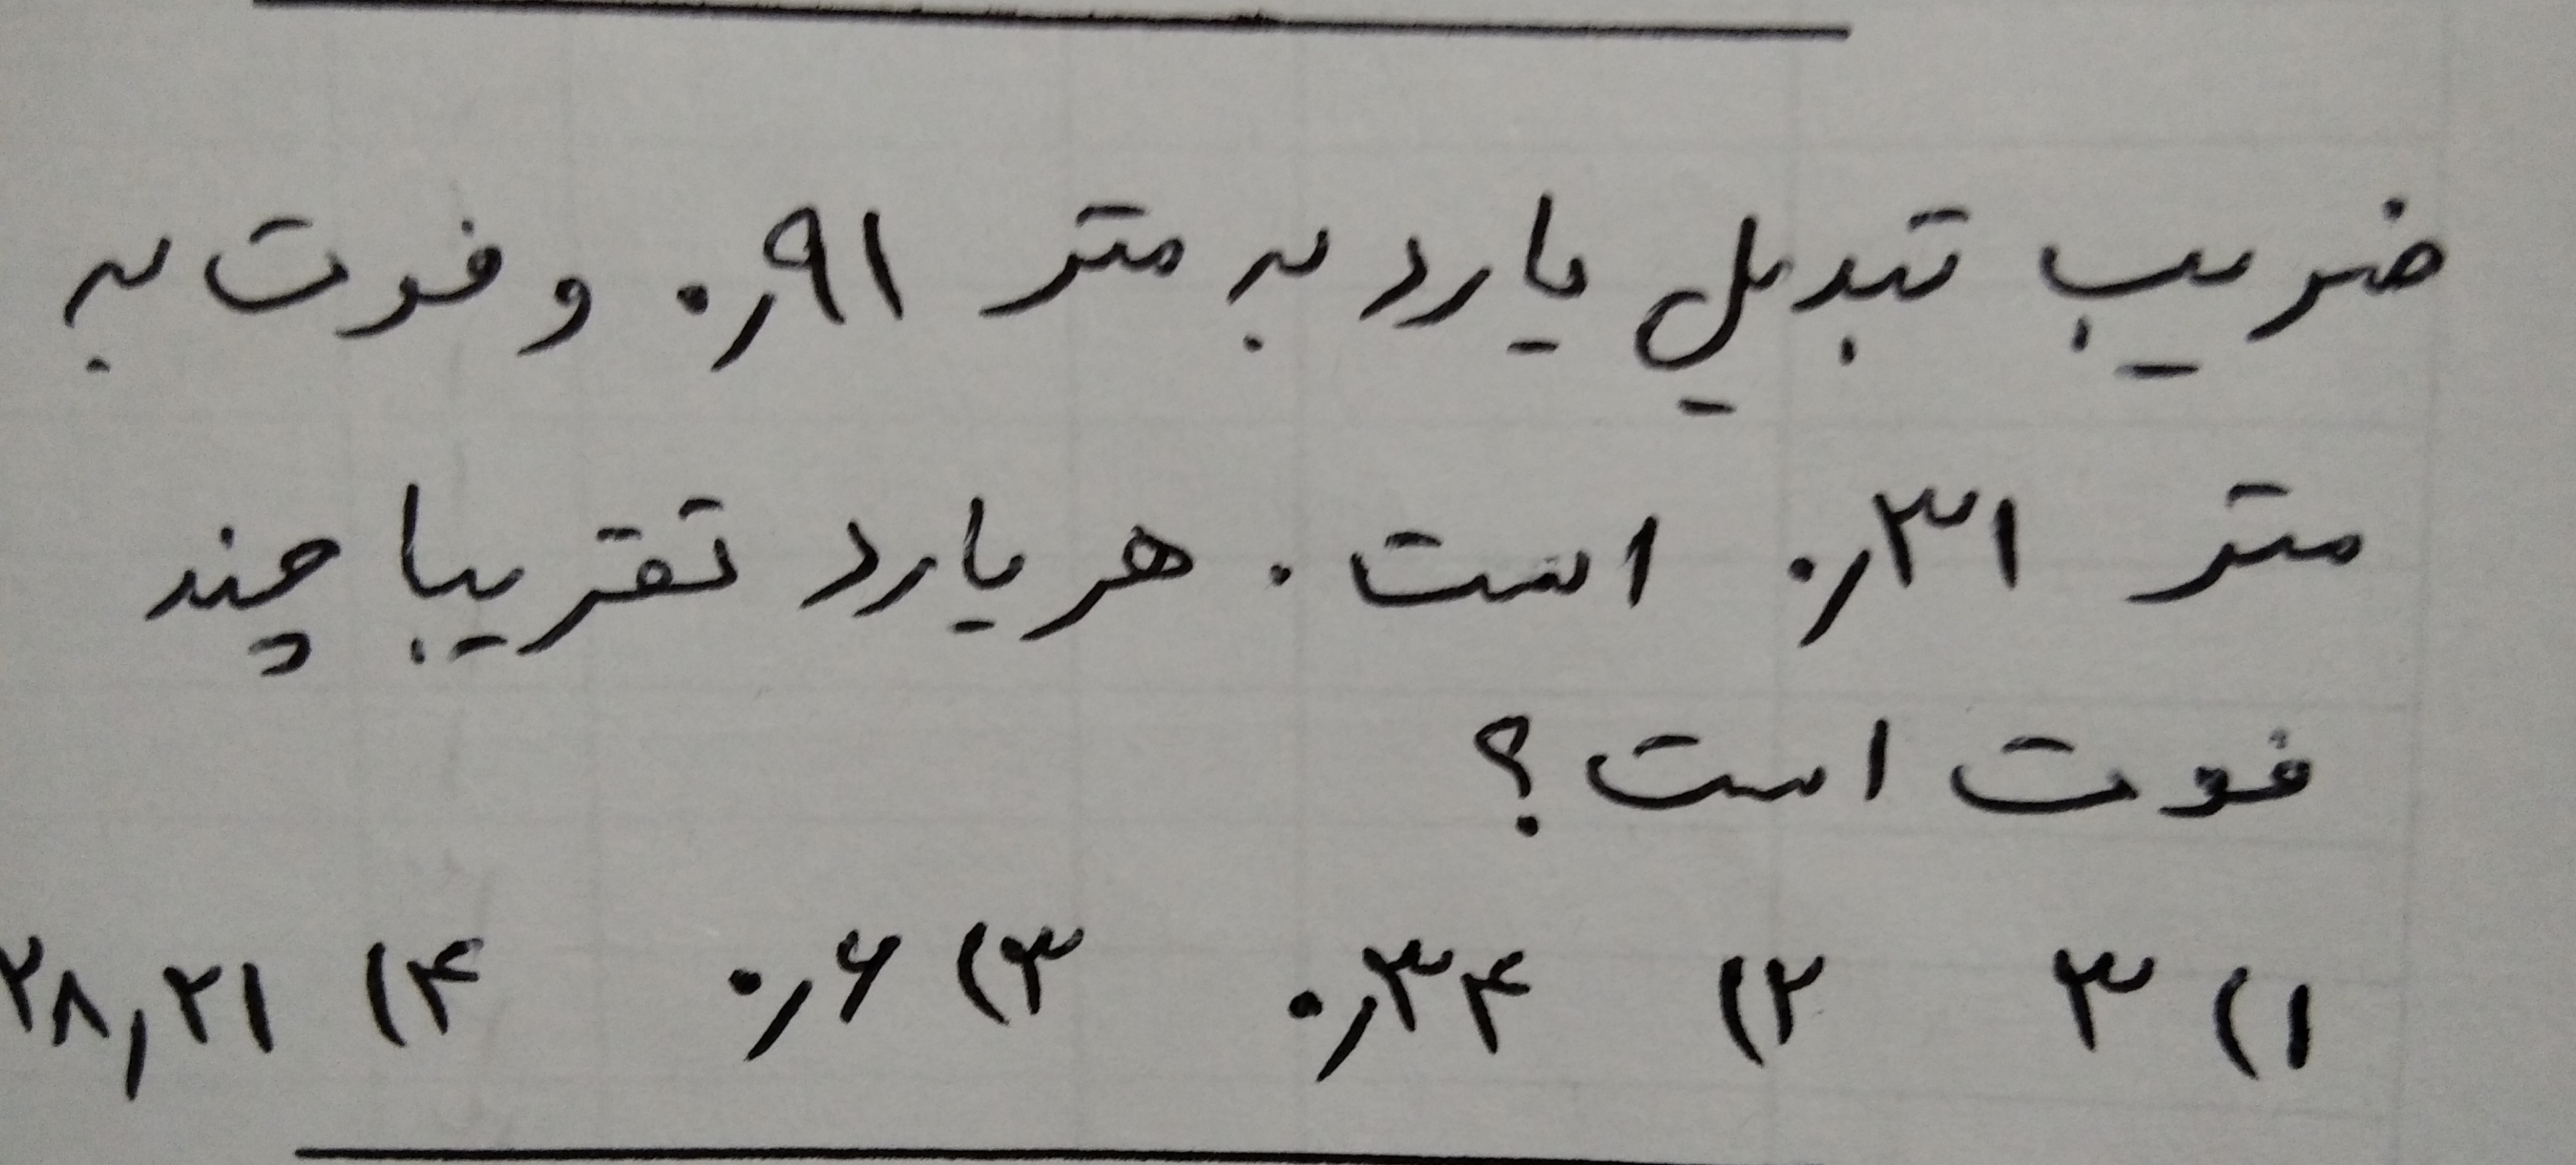 ضریب تبدیل یارد به متر ۰٫۹۱ و فوت به
متر ۰٫۳۱ است. هر یارد تقریبا چند
فوت است؟
۱) ۳ ۲) ۰٫۳۴ ۳) ۰٫۶ ۴) ۲۸٫۲۱